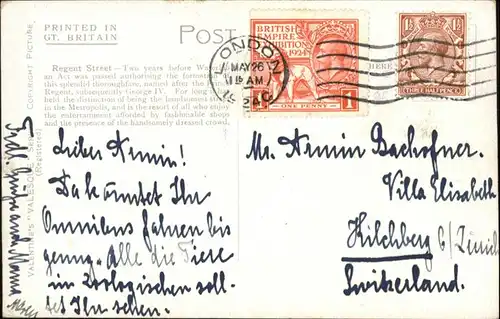 PRINTED IN
GT. BRITAIN
POST
Regent Street – Two years before
an Act was passed authorising the
this splendid thoroughfare, named after the
Regent, subsequently George IV. For
held the distinction of being the handsomest
in the Metropolis, and is the resort of all who enjoy
the entertainment afforded by fashionable shops
and the presence of the handsomely dressed crowd.
COPYRIGHT PICTURE
VALENTINE'S "VALESQUE" SERIES
(Registered)
LONDON
MAY 26
AM
1924
BRITISH
EMPIRE
EXHIBITION
1924
1 ONE PENNY 1
1½ 1½
THREE HALFPENCE
HERE
Lieber Armin!
Da könntet Ihr
Omnibus fahren bis
genug. Alle die Tiere
im Zoologischen soll-
tet Ihr sehen.
Mama
Mr. Armin Bachofner.
Villa Elisabeth
Kilchberg b/Zürich
Switzerland.